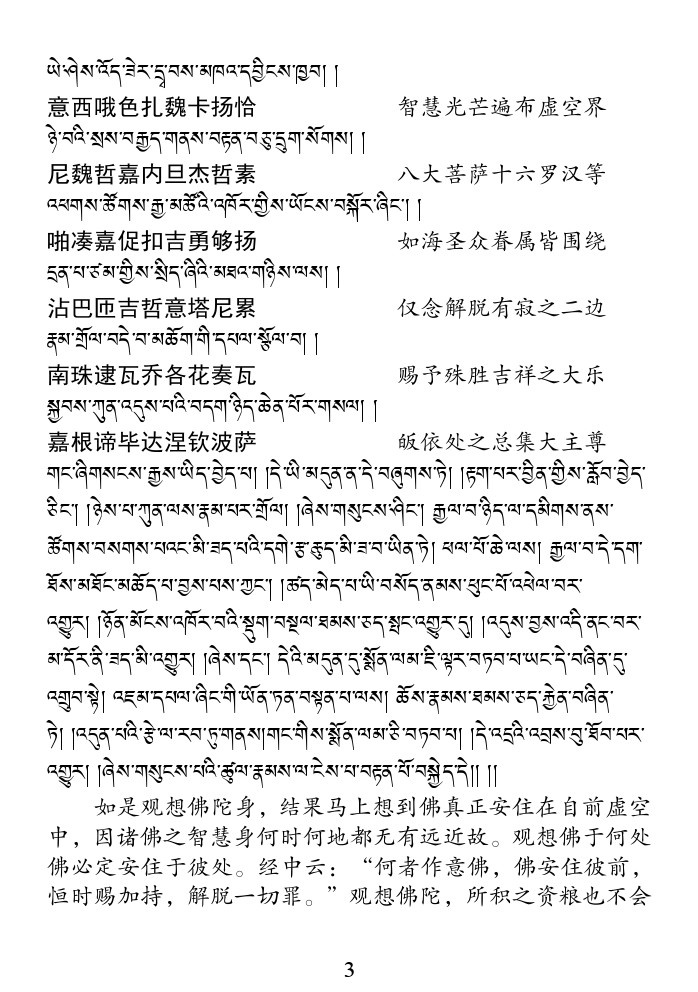 ཡེ་ཤེས་འོད་ཟེར་དྲྭ་བས་མཁའ་དབྱིངས་ཁྱབ། །
意西哦色扎魏卡扬恰 智慧光芒遍布虚空界
ཉེ་བའི་སྲས་བརྒྱད་གནས་བརྟན་བཅུ་དྲུག་སོགས། །
尼魏哲嘉内旦杰哲素 八大菩萨十六罗汉等
འཕགས་ཚོགས་རྒྱ་མཚོའི་འཁོར་གྱིས་ཡོངས་བསྐོར་ཞིང་། །
啪凑嘉促扣吉勇够扬 如海圣众眷属皆围绕
དྲན་པ་ཙམ་གྱིས་སྲིད་ཞིའི་མཐའ་གཉིས་ལས། །
沾巴匝吉哲意塔尼累 仅念解脱有寂之二边
རྣམ་གྲོལ་བདེ་བ་མཆོག་གི་དཔལ་སྩོལ་བ། །
南珠逮瓦乔各花奏瓦 赐予殊胜吉祥之大乐
སྐྱབས་ཀུན་འདུས་པའི་བདག་ཉིད་ཆེན་པོར་གསལ། །
嘉根谛毕达涅钦波萨 皈依处之总集大主尊
གང་ཞིགསངས་རྒྱས་ཡིད་བྱེད་པ། །དེ་ཡི་མདུན་ན་དེ་བཞུགས་ཏེ། །རྟག་པར་བྱིན་གྱིས་རློབ་བྱེད་
ཅིང་། །ཉེས་པ་ཀུན་ལས་རྣམ་པར་གྲོལ། །ཞེས་གསུངས་ཤིང་། རྒྱལ་བ་ཉིད་ལ་དམིགས་ནས་
ཚོགས་བསགས་པའང་མི་ཟད་པའི་དགེ་རྩ་ཆུད་མི་ཟ་བ་ཡིན་ཏེ། ཕལ་པོ་ཆེ་ལས། རྒྱལ་བ་དེ་དག་
ཐོས་མཐོང་མཆོད་པ་བྱས་པས་ཀྱང་། །ཚད་མེད་པ་ཡི་བསོད་ནམས་ཕུང་པོ་འཕེལ་བར་
འགྱུར། །ཉོན་མོངས་འཁོར་བའི་སྡུག་བསྔལ་ཐམས་ཅད་སྤང་འགྱུར་དུ། །འདུས་བྱས་འདི་ནང་བར་
མ་དོར་ནི་ཟད་མི་འགྱུར། །ཞེས་དང་། དེའི་མདུན་དུ་སྨོན་ལམ་ཇི་ལྟར་བཏབ་པ་ཡང་དེ་བཞིན་དུ་
འགྲུབ་སྟེ། འཇམ་དཔལ་ཞིང་གི་ཡོན་ཏན་བསྟན་པ་ལས། ཆོས་རྣམས་ཐམས་ཅད་རྐྱེན་བཞིན་
ཏེ། །འདུན་པའི་རྩེ་ལ་རབ་ཏུ་གནས།གང་གིས་སྨོན་ལམ་ཅི་བཏབ་པ། །དེ་འདྲའི་འབྲས་བུ་ཐོབ་པར་
འགྱུར། །ཞེས་གསུངས་པའི་ཚུལ་རྣམས་ལ་ངེས་པ་བརྟན་པོ་བསྐྱེད་དེ།། །།
如是观想佛陀身，结果马上想到佛真正安住在自前虚空
中，因诸佛之智慧身何时何地都无有远近故。观想佛于何处
佛必定安住于彼处。经中云：“何者作意佛，佛安住彼前，
恒时赐加持，解脱一切罪。”观想佛陀，所积之资粮也不会
3